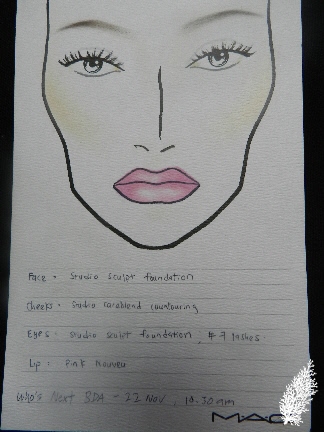 Face • Studio Sculpt foundation
Cheeks • Studio Careblend countouring
Eyes : Studio Sculpt foundation, # 7 lashes
Lip : Pink Nouveu
Who's Next BDA - 22 Nov, 10.30 am
MAC